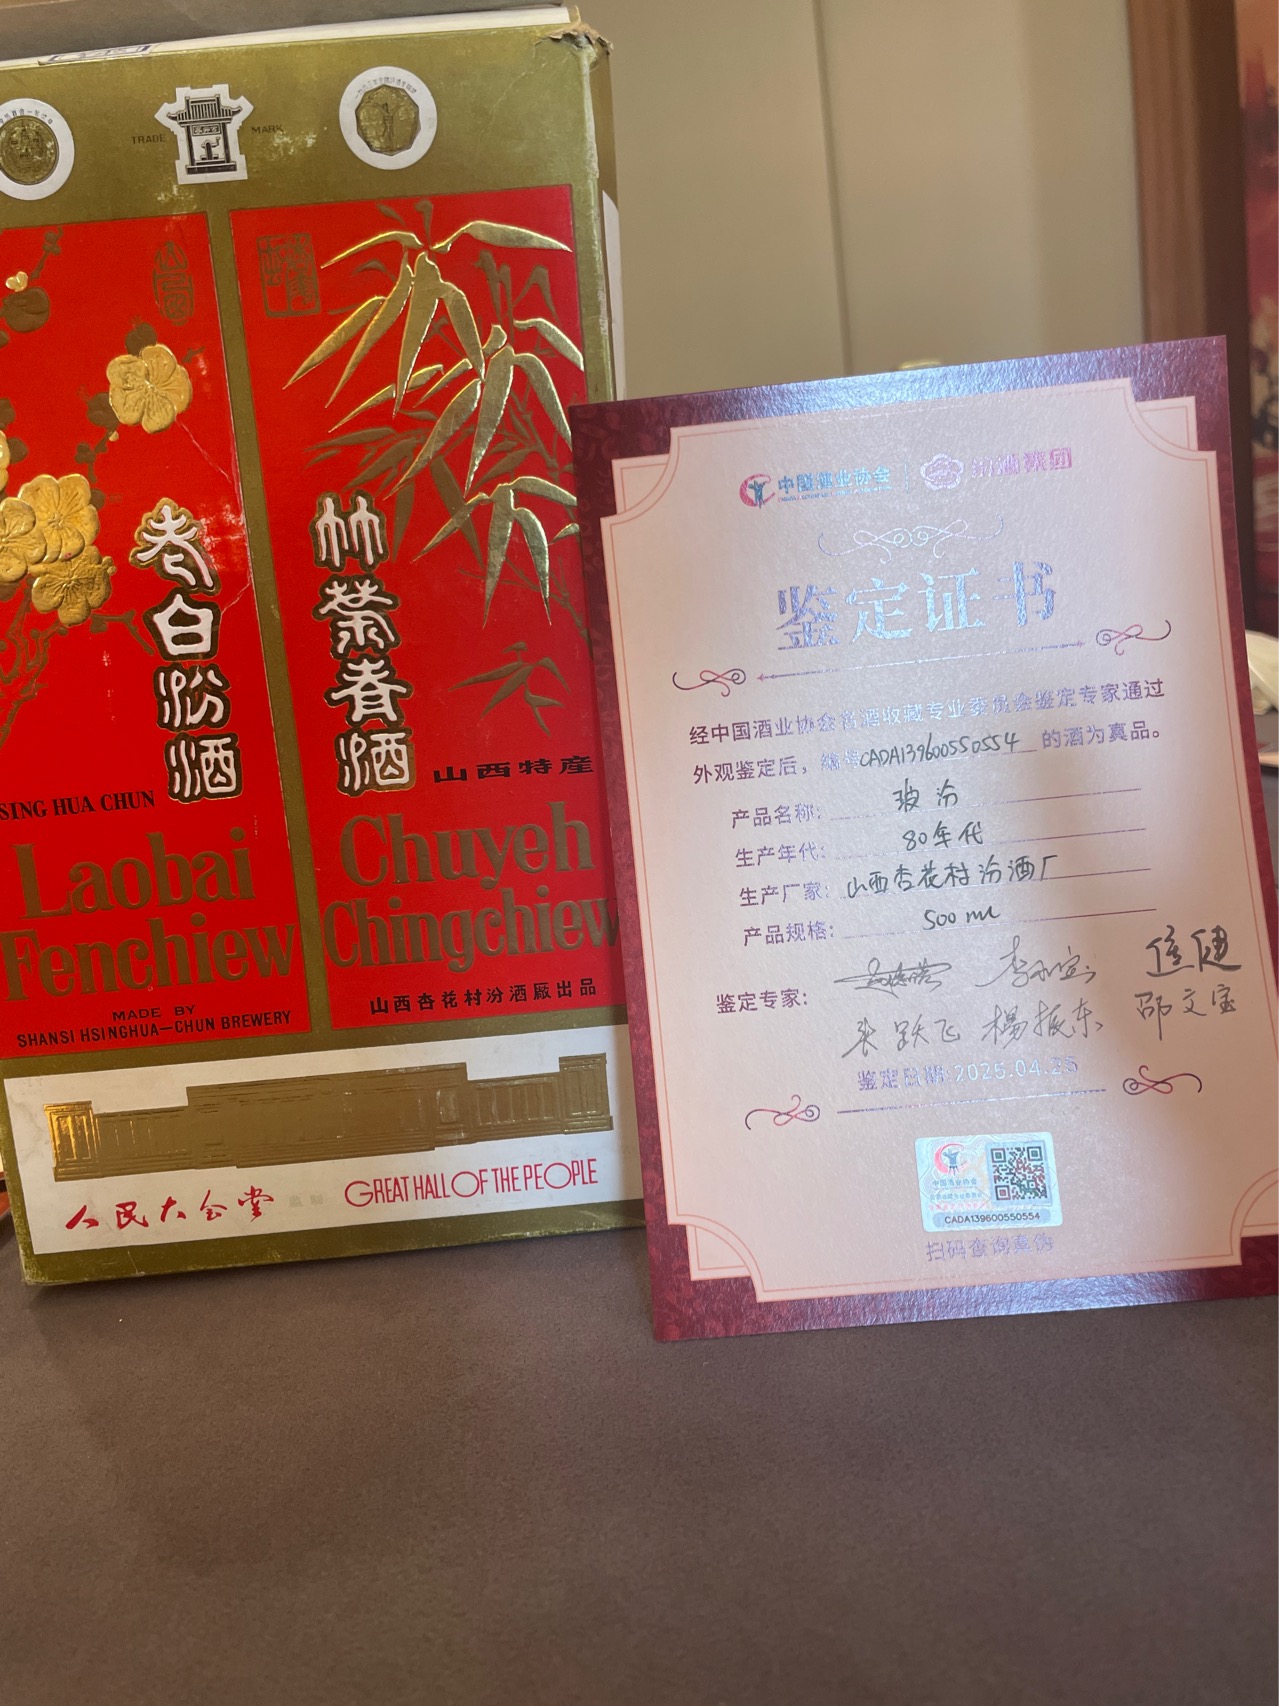 TRADE MARK
老白汾酒
竹葉青酒
山西特産
SING HUA CHUN
Laobai
Fenchiew
Chuyeh
Chingchiew
MADE BY
SHANSI HSINGHUA—CHUN BREWERY
山西杏花村汾酒厰出品
人民大会堂
GREAT HALL OF THE PEOPLE
中国酒业协会
汾酒集团
鉴定证书
经中国酒业协会名酒收藏专业委员会鉴定专家通过
外观鉴定后，编号CADA139600550554的酒为真品。
产品名称: 玻汾
生产年代: 80年代
生产厂家: 山西杏花村汾酒厂
产品规格: 500ml
鉴定专家:
侯健
张跃飞 楊振东 邵文宝
鉴定日期:2025.04.25
中国酒业协会
CADA139600550554
扫码查询真伪